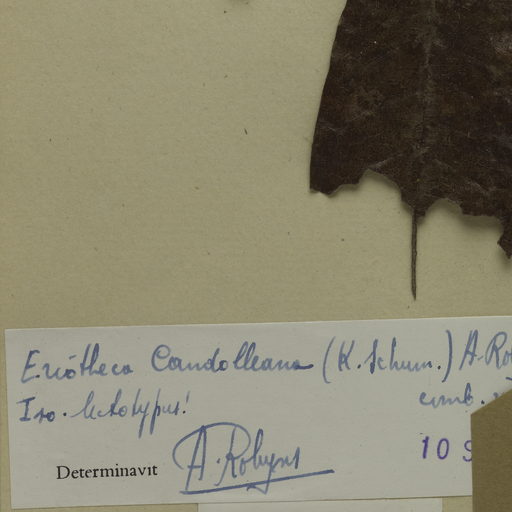 Eriotheca Candolleana (K. Schum.) A. Ro
Iso-lectotypus!
comb.
Determinavit A. Robyns
10 S